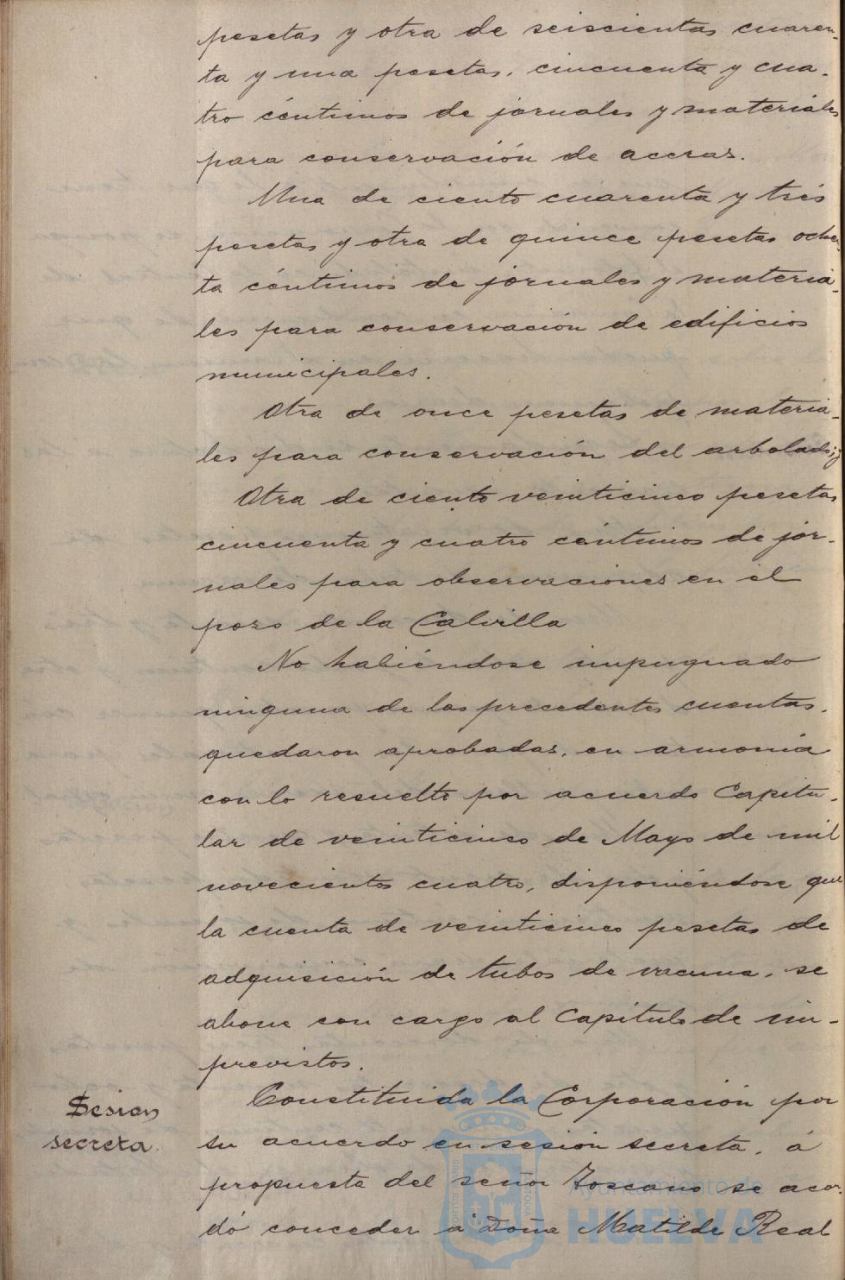 pesetas y otra de seiscientas cuaren-
ta y una pesetas, cincuenta y cua-
tro céntimos de jornales y materiales
para conservación de aceras.
Una de ciento cuarenta y trés
pesetas y otra de quince pesetas ochen-
ta céntimos de jornales y materia-
les para conservación de edificios
municipales.
Otra de once pesetas de materia-
les para conservación del arbolado; y
Otra de ciento veinticinco pesetas
cincuenta y cuatro céntimos de jor-
nales para observaciones en el
pozo de la Calvilla
No habiéndose impugnado
ninguna de las precedentes cuentas,
quedaron aprobadas, en armonía
con lo resuelto por acuerdo Capitu-
lar de veinticinco de Mayo de mil
novecientos cuatro, disponiéndose que
la cuenta de veinticinco pesetas de
adquisición de tubos de vacuna, se
abone con cargo al Capítulo de im-
previstos.
Sesion
secreta.
Constituida la Corporación por
su acuerdo en sesión secreta, á
propuesta del señor Toscano se acor-
dó conceder á Doña Matilde Real
Ayuntamiento de
HUELVA